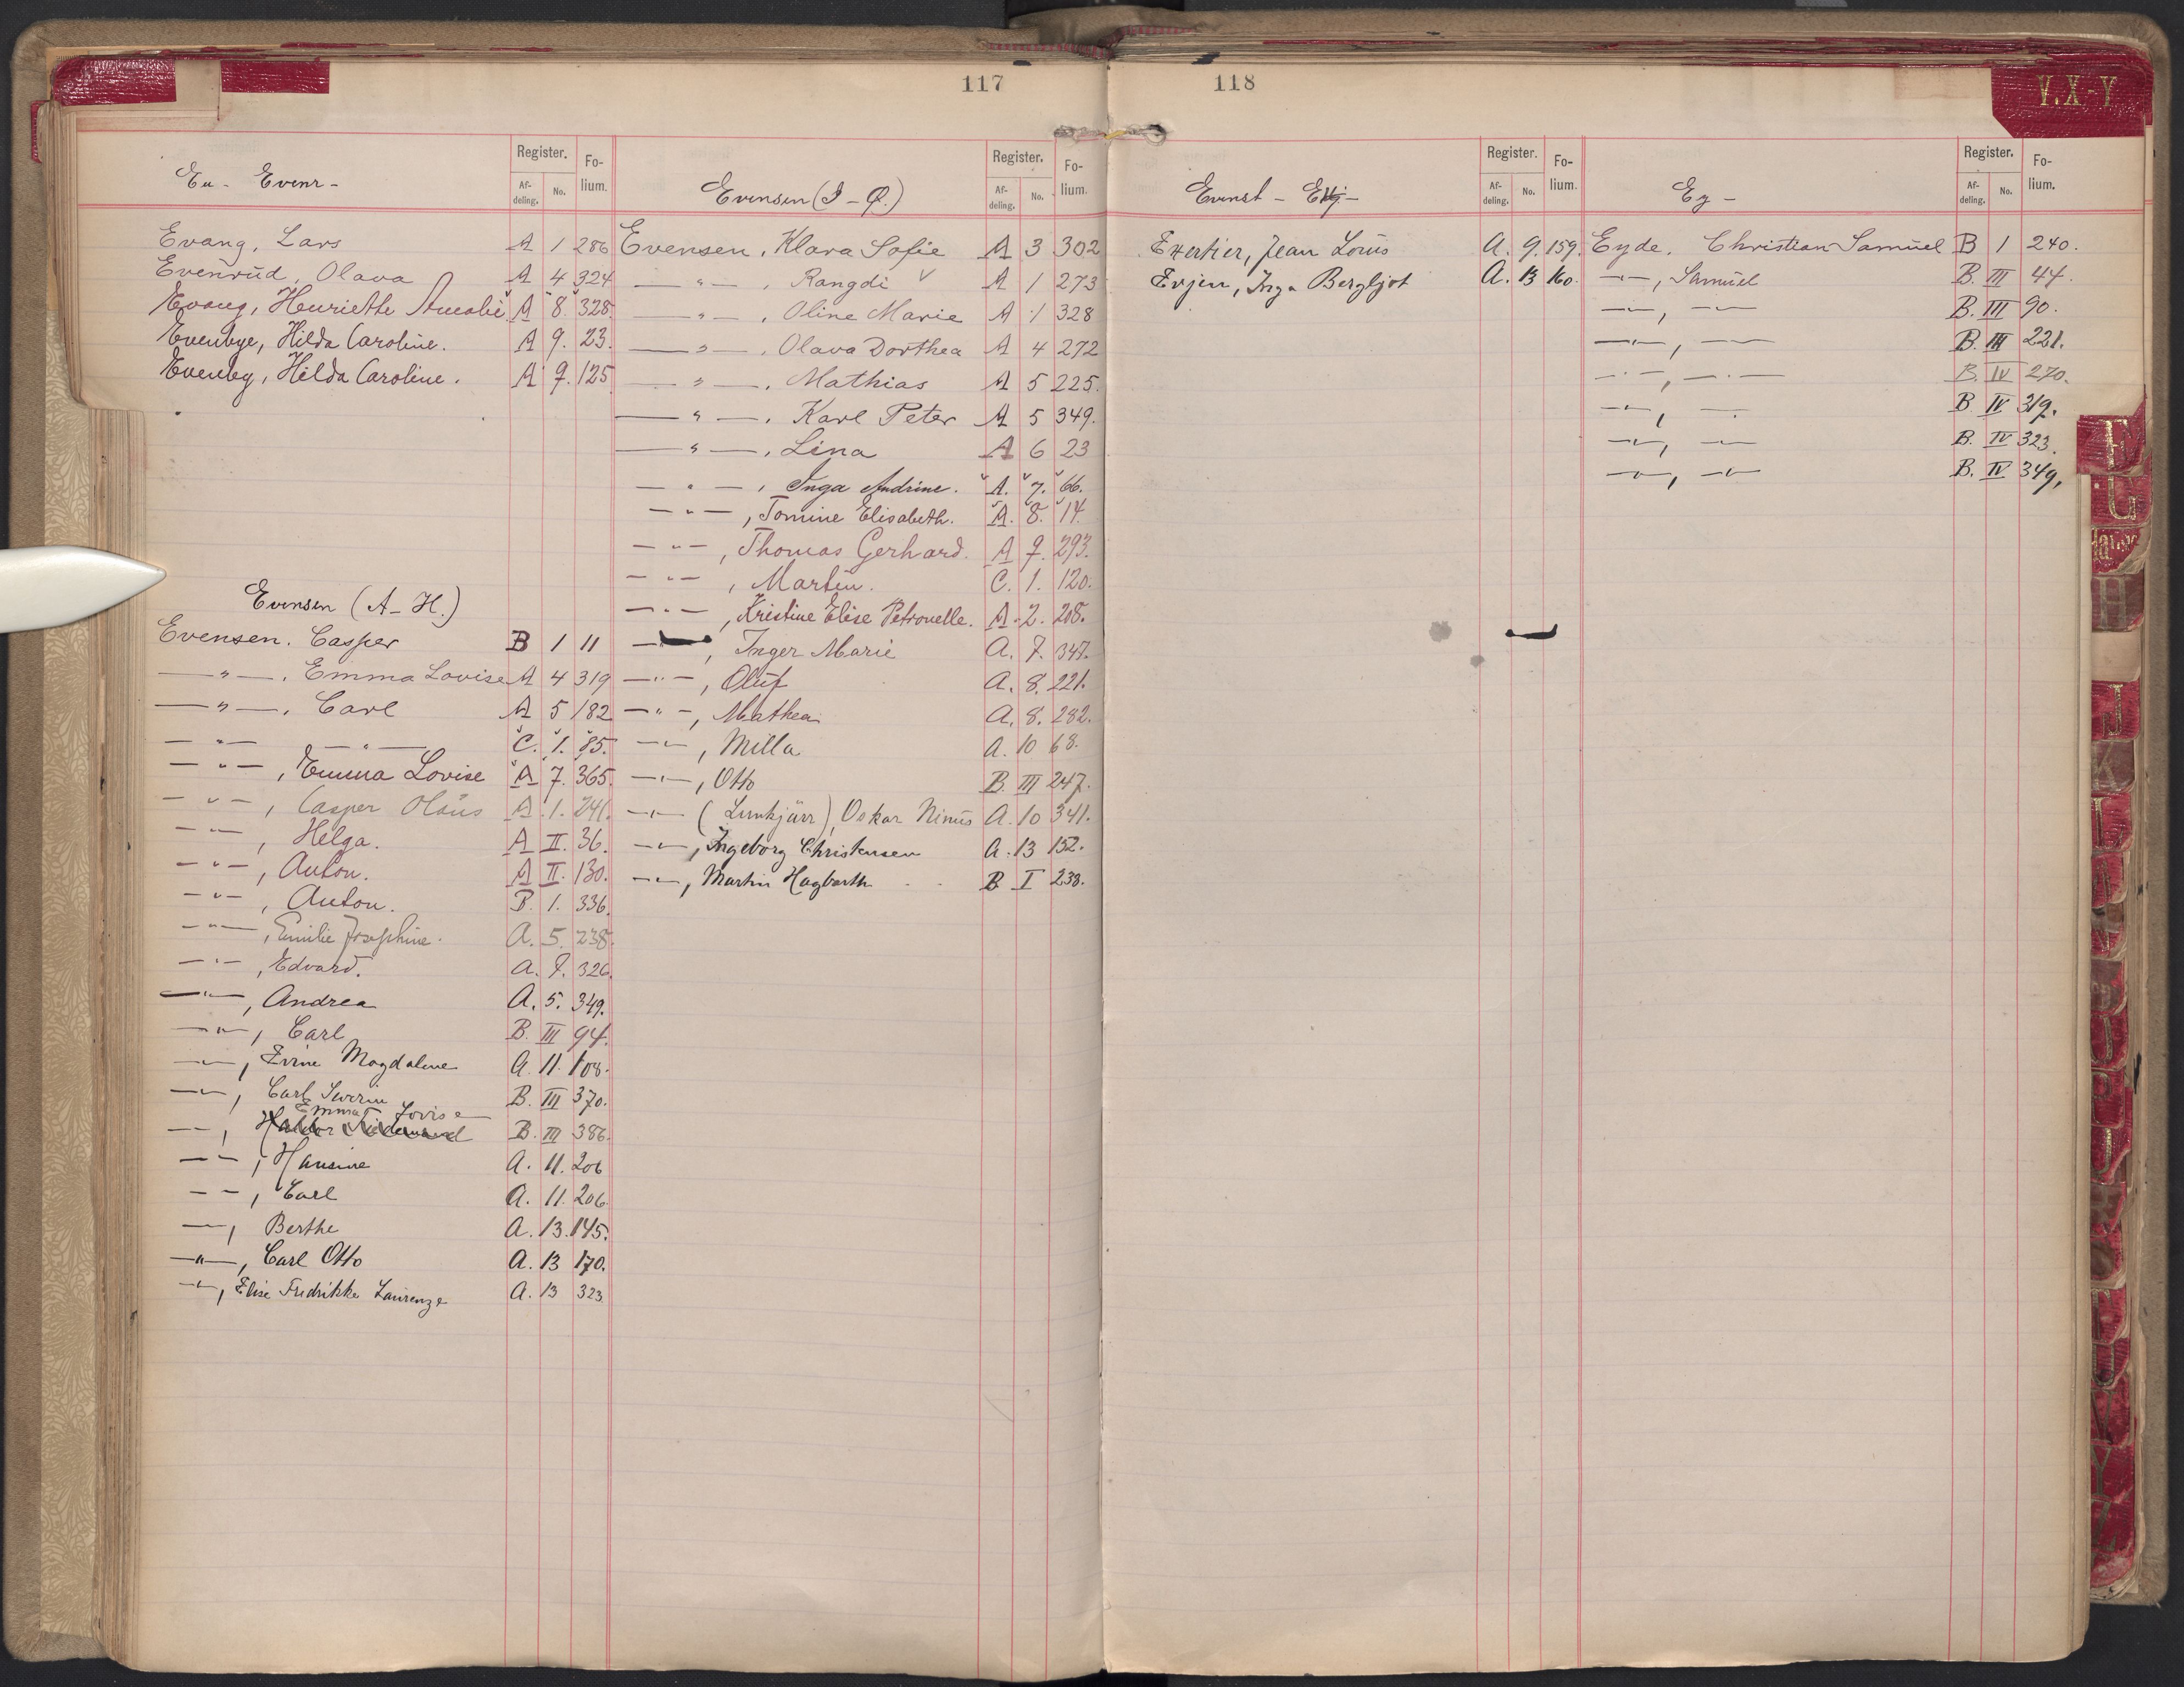 117
Eu - Evenr -
Register. Folium.
Afdeling. No.
Evang, Lars A 1 286
Evenrud, Olava A 4 324
Evang, Henriette Amalie. A 8. 328.
Evenbye, Hilda Caroline. A 9. 23.
Evenby, Hilda Caroline. A 9. 125
Evensen (A-H.)
Evensen. Casper B 1 11
—"—. Emma Lovise A 4 319
—"—. Carl A 5 182
—"— —"— C. 1. 85.
—"—, Emma Lovise A 7. 365.
—"—, Casper Olaus A. 1. 241.
—"—, Helga. A II. 36.
—"—, Anton. A II. 130.
—"—, Anton. B. 1. 336.
—"—, Emilie Josephine. A. 5. 238.
—"—, Edvard. A. 7. 326.
—"—, Andrea A. 5. 349.
—"—, Carl B. III 94.
—"—, Magdalene A. 11. 108.
—"—, Carl Sverin B. III 370.
Emma Lovise
—"—, B. III 386.
—"—, Hansine A. 11. 206
—"—, Carl A. 11. 206.
—"—, Berthe A. 13. 145.
—"—, Carl Otto A. 13 170.
—"—, Elise Fredrikke Laurenze A. 13 323
Evensen (I-Q.)
Register. Folium.
Afdeling. No.
Evensen, Klara Sofie A 3 302
—"—, Rangdi A 1 273
—"—, Oline Marie A 1 328
—"—, Olava Dorthea A 4 272
—"—, Mathias A 5 225.
—"—, Karl Peter A 5 349.
—"—, Lina A 6 23
—"—, Inga Andrine. A. 7. 66.
—"—, Tomine Elisabeth. A. 8. 14.
—"—, Thomas Gerhard. A 9. 293.
—"—, Martin. C. 1. 120.
—"—, Kristine Elise Petronelle. A. 2. 208.
—"—, Inger Marie A. 7. 347.
—"—, Oluf A. 8. 221.
—"—, Mathea A. 8. 282.
—"—, Milla A. 10 68.
—"—, Otto B. III 247.
—"— ( ), Oskar Nimus A. 10 341.
—"—, Ingeborg Christensen A. 13 152.
—"—, Martin Hagbarth B I 238.
118
V.X-Y
Evenst -
Register. Folium.
Afdeling. No.
Exertier, Jean Louis A. 9. 159.
Evjen, Inga Bergljot A. 13 160.
Ey -
Register. Folium.
Afdeling. No.
Eyde, Christian Samuel B 1 240.
—"—, Samuel B. III 44.
—"—, —"— B. III 90.
—"—, —"— B. III 221.
—"—, —"— B. IV 270.
—"—, —"— B. IV 319.
—"—, —"— B. IV 323.
—"—, —"— B. IV 349,